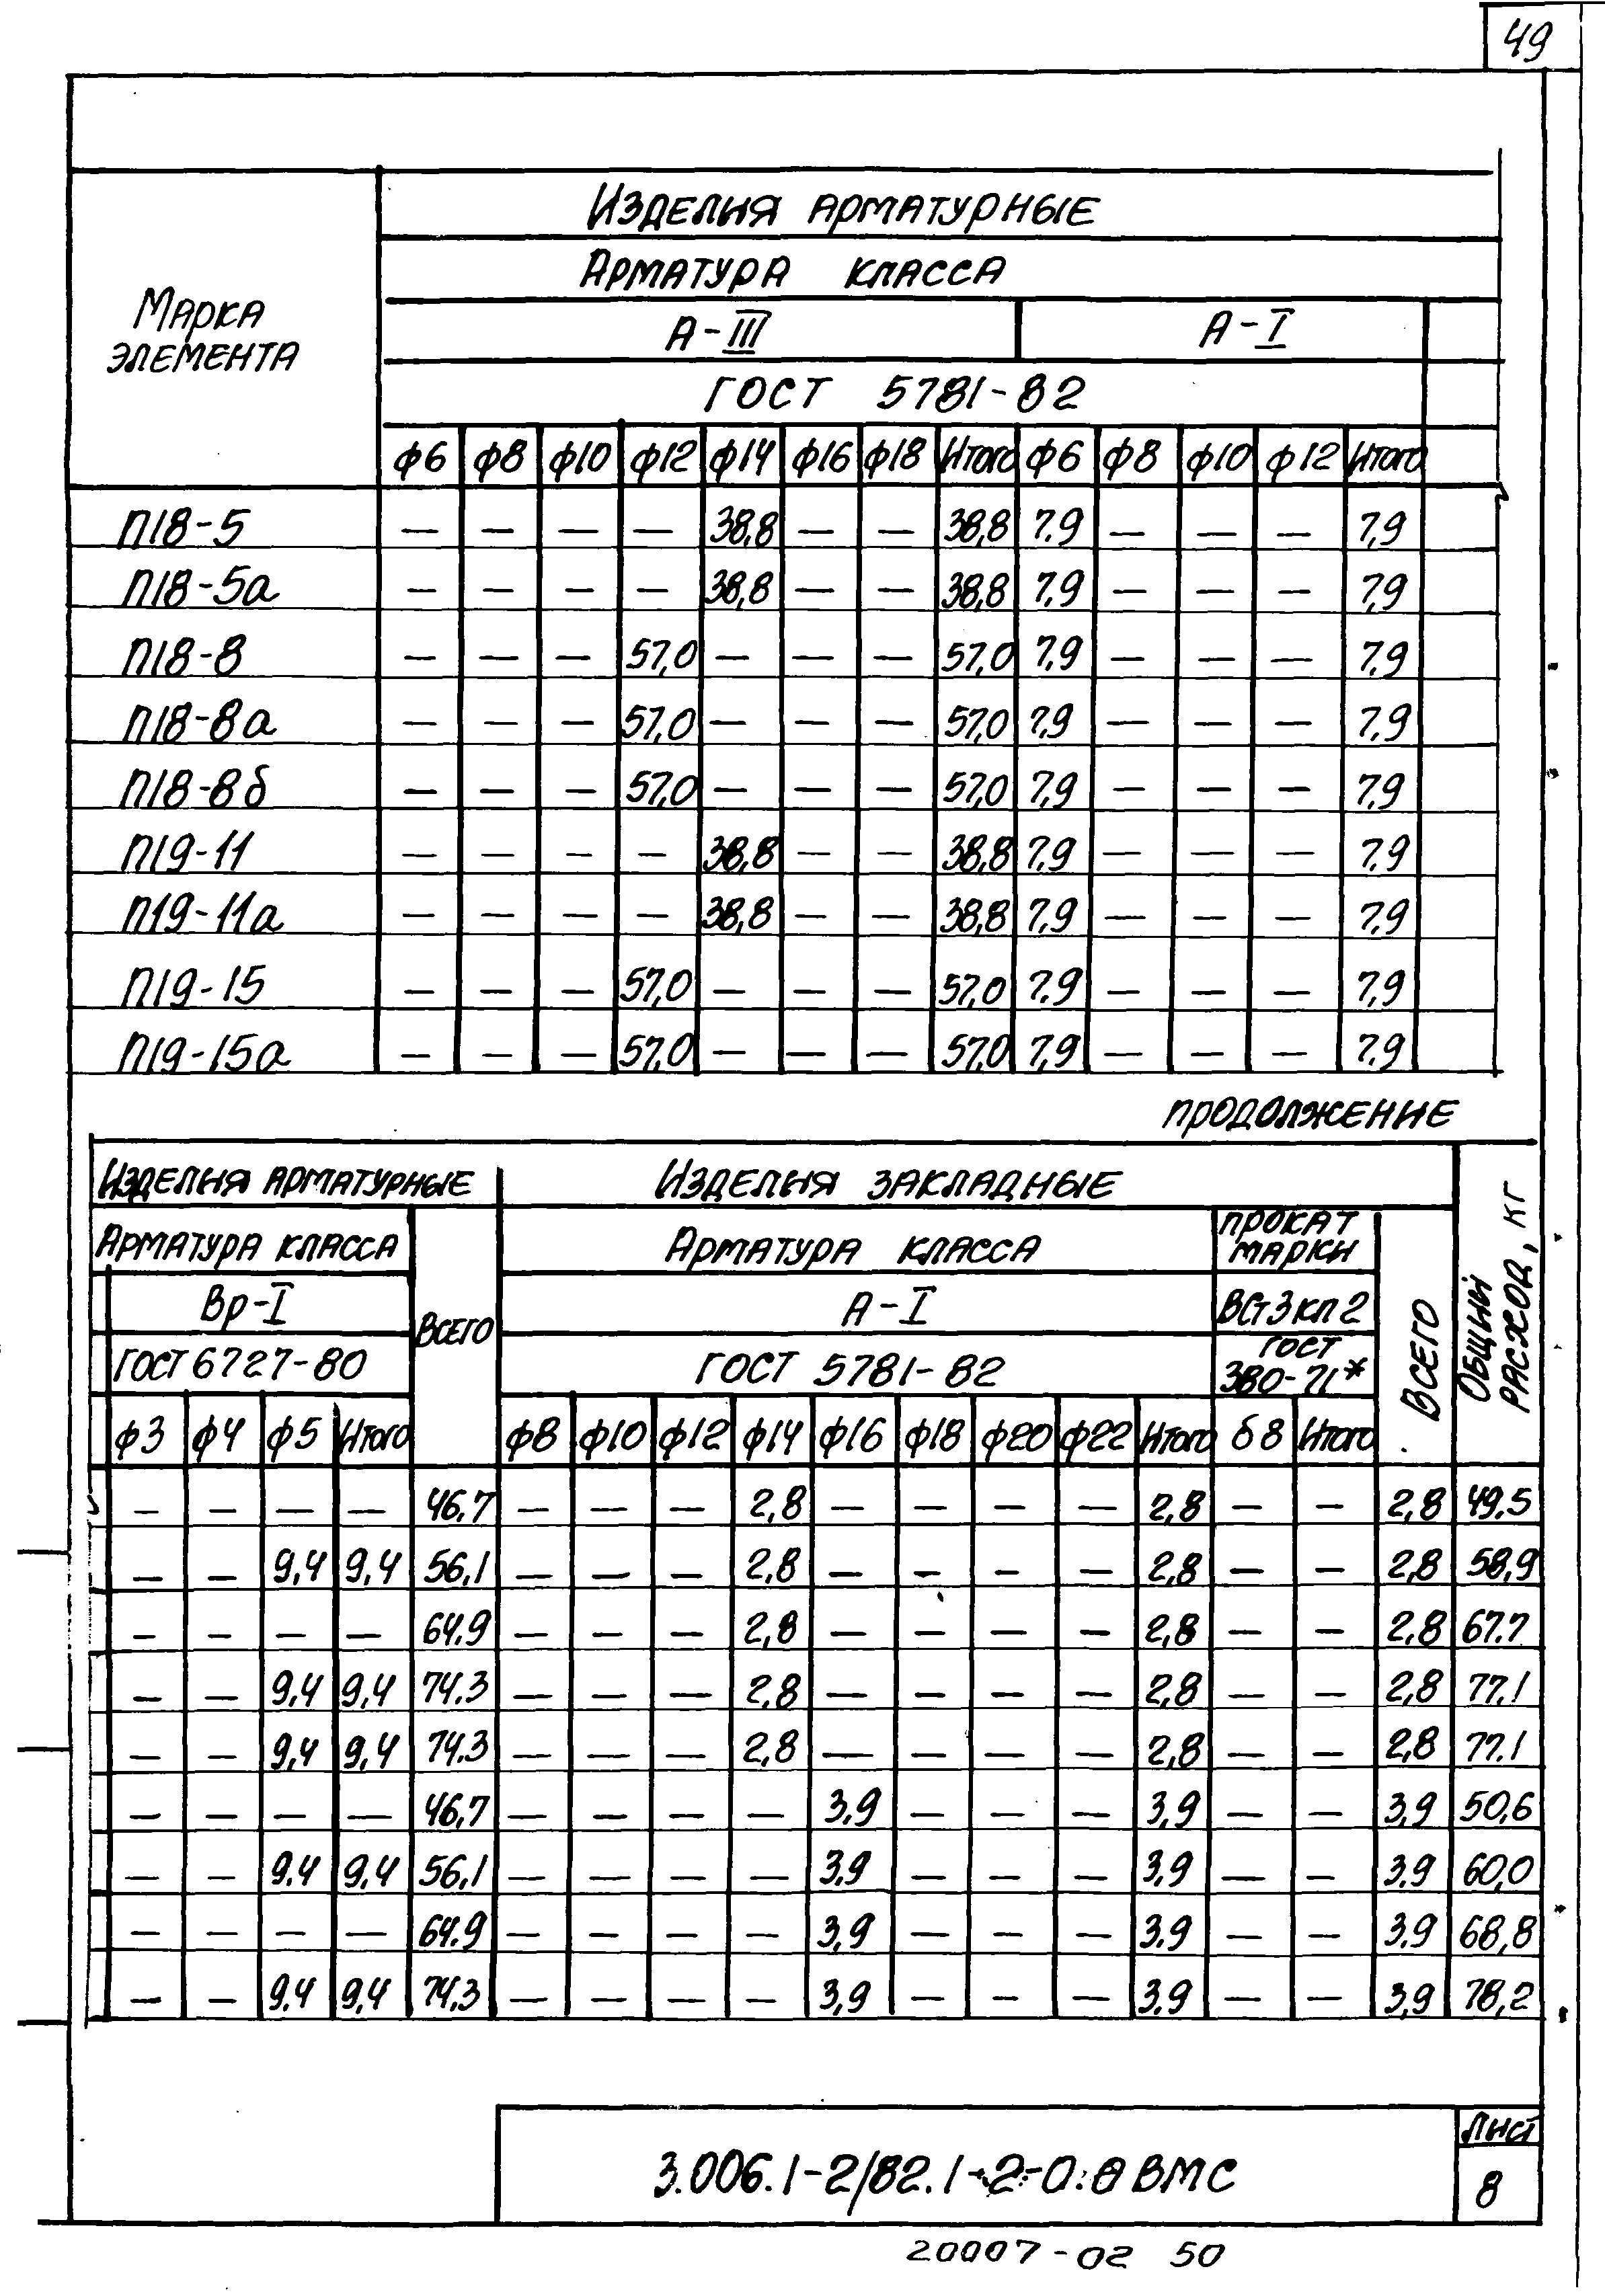 49
Изделия арматурные
Арматура класса
Марка элемента
А-III А-I
ГОСТ 5781-82
ф6 ф8 ф10 ф12 ф14 ф16 ф18 Итого ф6 ф8 ф10 ф12 Итого
П18-5 — — — — 38,8 — — 38,8 7,9 — — — 7,9
П18-5а — — — — 38,8 — — 38,8 7,9 — — — 7,9
П18-8 — — — 57,0 — — — 57,0 7,9 — — — 7,9
П18-8а — — — 57,0 — — — 57,0 7,9 — — — 7,9
П18-8б — — — 57,0 — — — 57,0 7,9 — — — 7,9
П19-11 — — — — 38,8 — — 38,8 7,9 — — — 7,9
П19-11а — — — — 38,8 — — 38,8 7,9 — — — 7,9
П19-15 — — — 57,0 — — — 57,0 7,9 — — — 7,9
П19-15а — — — 57,0 — — — 57,0 7,9 — — — 7,9
продолжение
Изделия арматурные Изделия закладные Общий расход, кг
Арматура класса Всего Арматура класса прокат марки Всего
Вр-I А-I ВСт3кп2
ГОСТ 6727-80 ГОСТ 5781-82 ГОСТ 380-71*
ф3 ф4 ф5 Итого ф8 ф10 ф12 ф14 ф16 ф18 ф20 ф22 Итого б8 Итого
— — — — 46,7 — — — 2,8 — — — — 2,8 — — 2,8 49.5
— — 9,4 9,4 56,1 — — — 2,8 — — — — 2,8 — — 2,8 58,9
— — — — 64.9 — — — 2,8 — — — — 2,8 — — 2,8 67.7
— — 9,4 9,4 74.3 — — — 2,8 — — — — 2,8 — — 2,8 77.1
— — 9,4 9,4 74.3 — — — 2,8 — — — — 2,8 — — 2,8 77.1
— — — — 46,7 — — — — 3,9 — — — 3,9 — — 3,9 50,6
— — 9.4 9,4 56,1 — — — — 3,9 — — — 3,9 — — 3,9 60,0
— — — — 64.9 — — — — 3,9 — — — 3,9 — — 3,9 68,8
— — 9,4 9,4 74,3 — — — — 3,9 — — — 3,9 — — 3,9 78,2
3.006.1-2/82.1-2-0.0 ВМС
Лист
8
20007-02 50